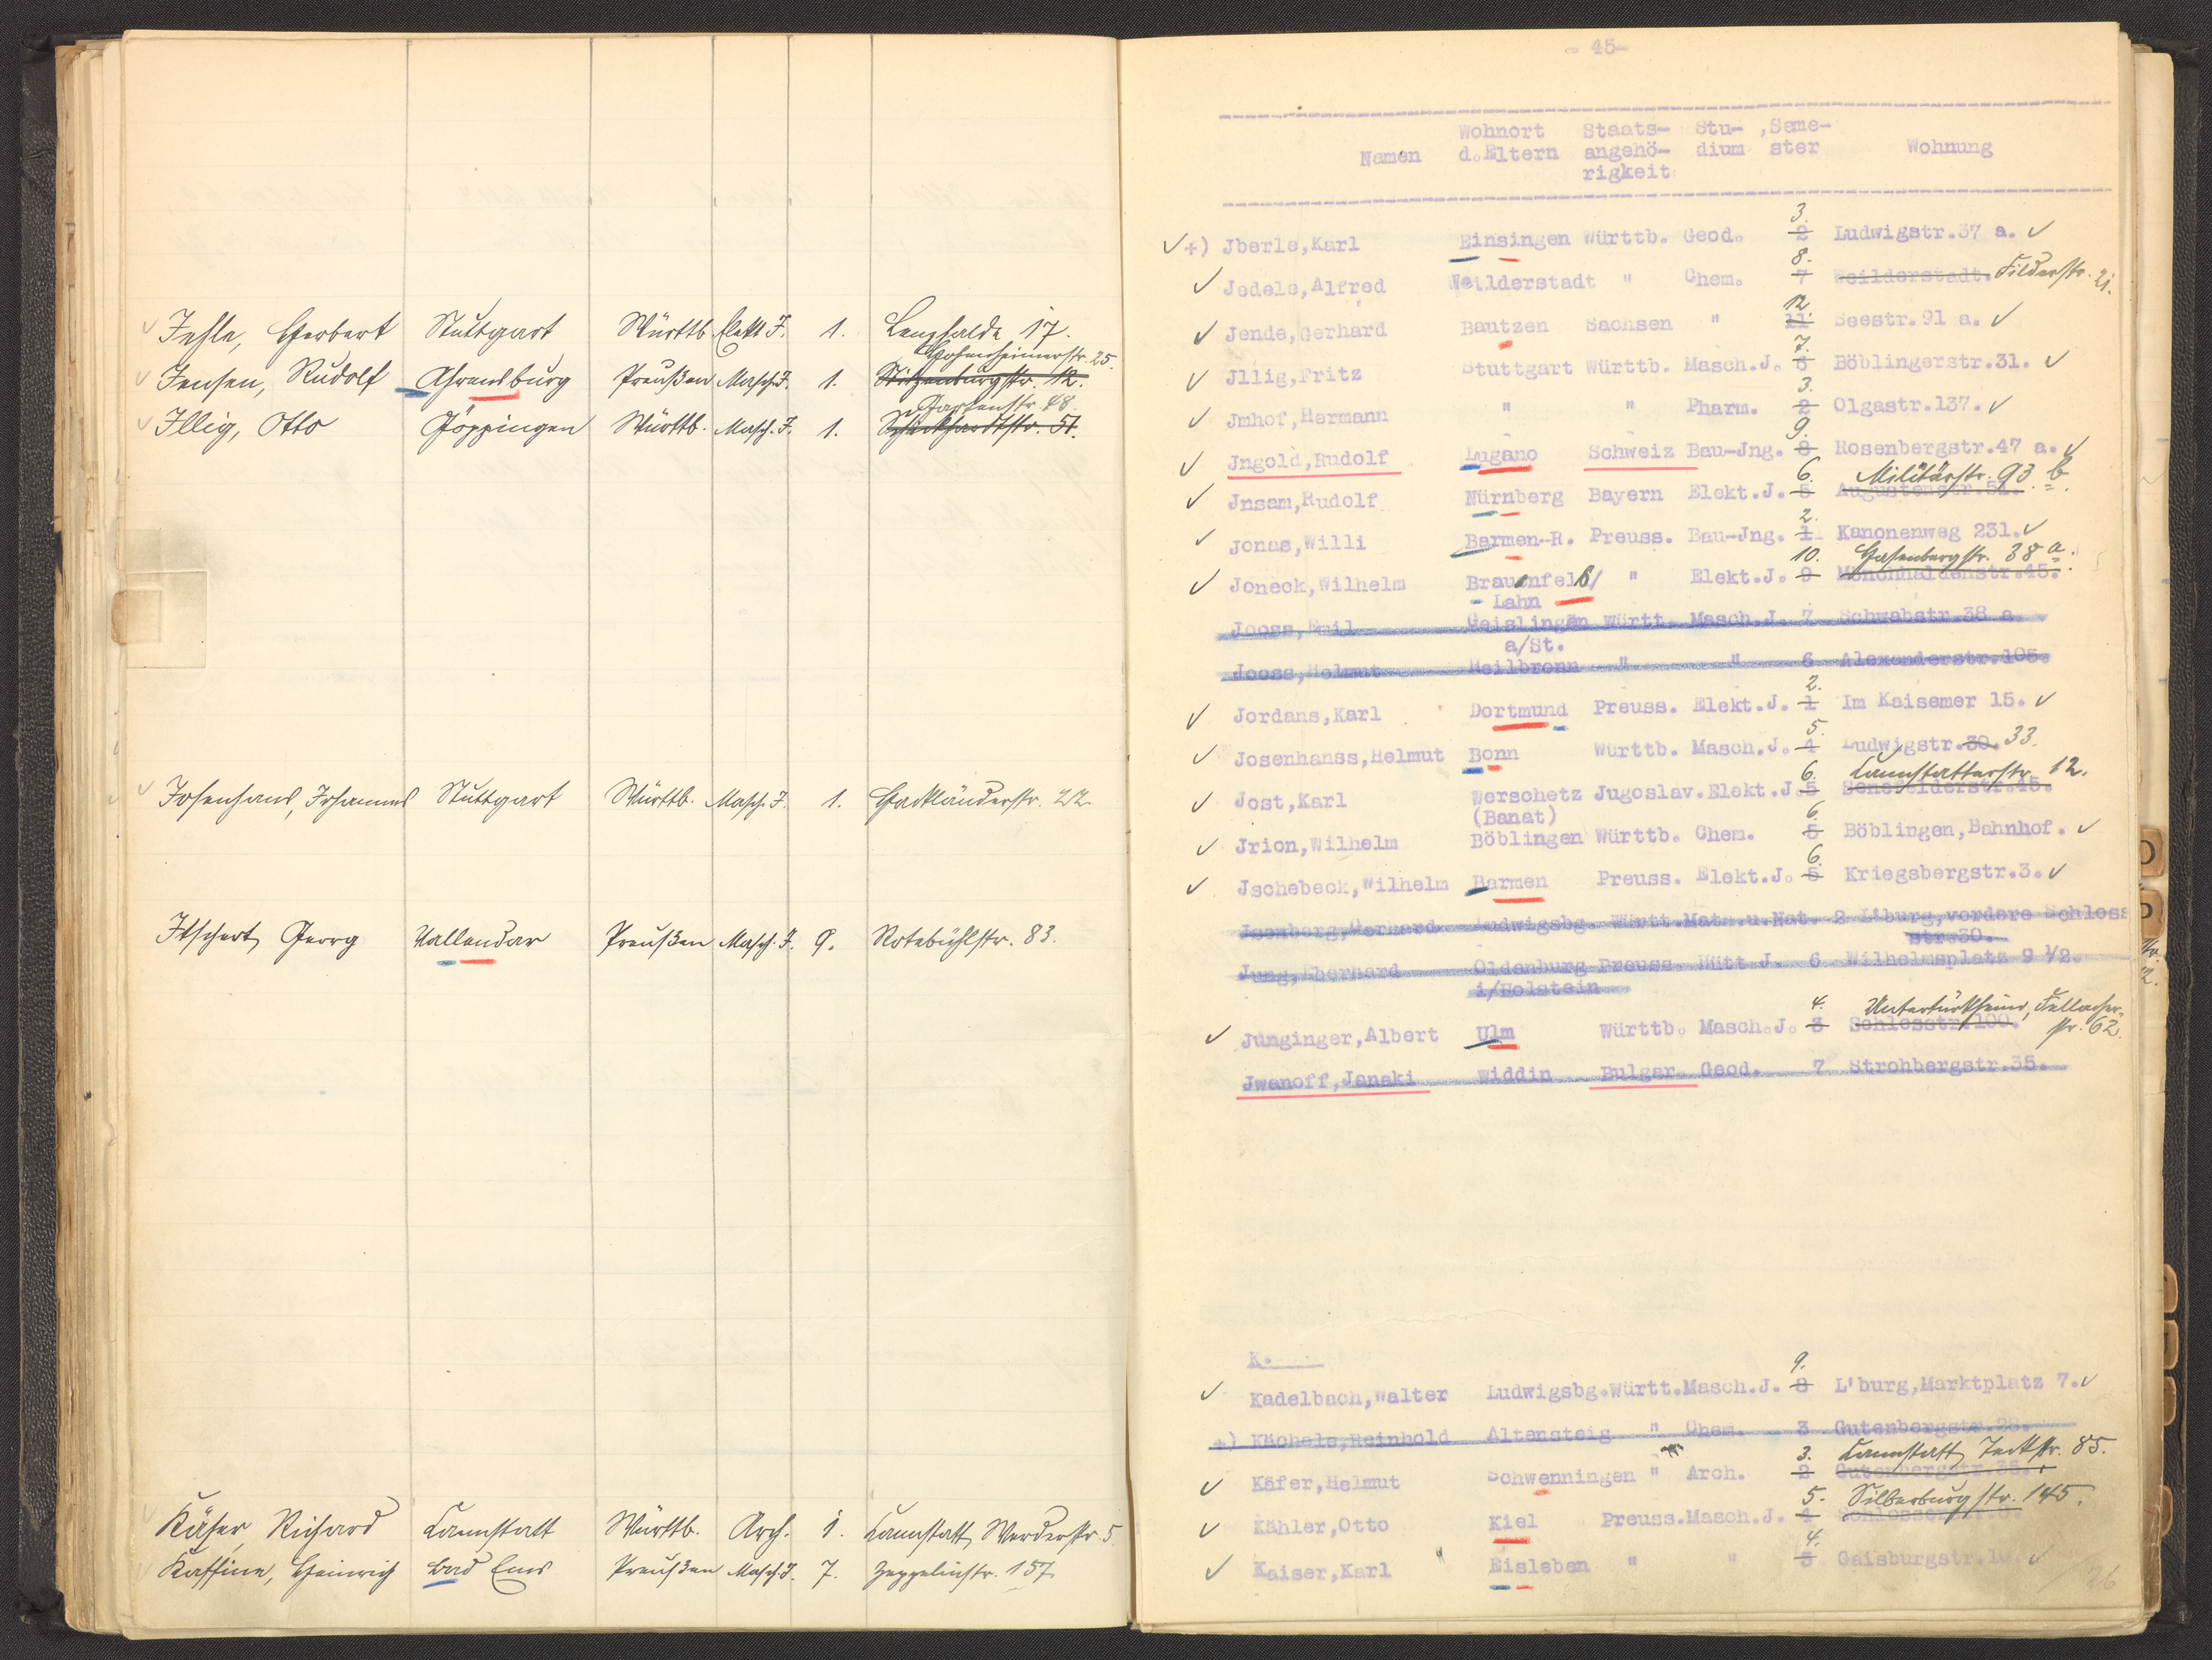 Jehle, Herbert Stuttgart Württb. Elekt J. 1. Lenzhalde 17.
Hohenheimerstr. 25.
Jensen, Rudolf Ahrensburg Preußen Masch. J. 1. Stitzenburgstr. 12.
Gartenstr. 48
Illig, Otto Göppingen Württb. Masch. J. 1. Schickhardtstr. 51.
Josenhans, Johannes Stuttgart Württb. Masch. J. 1. Hackländerstr. 22.
Itschert, Georg Vallendar Preußen Masch. J. 9. Rotebühlstr. 83.
Käser, Richard Cannstatt Württb. Arch. 1. Cannstatt, Werderstr. 5
Kaffine, Heinrich Bad Ems Preußen Masch. J. 7. Zeppelinstr. 157
- 45-
Wohnort Staats- Stu- ,Seme-
Namen d.Eltern angehö- dium ster Wohnung
rigkeit
3.
+) Jberle,Karl Einsingen Württb. Geod. 2 Ludwigstr.37 a.
8.
Jedele,Alfred Weilderstadt " Chem. 7 Weilderstadt. Filderstr. 21.
12.
Jende,Gerhard Bautzen Sachsen " 11 Seestr.91 a.
7.
Jllig,Fritz Stuttgart Württb. Masch.J. 6 Böblingerstr.31.
3.
Jmhof,Hermann " " Pharm. 2 Olgastr.137.
9.
Jngold,Rudolf Lugano Schweiz Bau-Jng. 8 Rosenbergstr.47 a.
6. Militärstr. 93 b.
Jnsam,Rudolf Nürnberg Bayern Elekt.J. 5 Augustenstr.54.
2.
Jonas,Willi Barmen-R. Preuss. Bau-Jng. 1 Kanonenweg 231.
10. Hasenbergstr. 38 a.
Joneck,Wilhelm Braunfels/ " Elekt.J. 9 Mönchhaldenstr.45.
- Lahn
Jooss,Emil Geislingen Württ. Masch.J. 7 Schwabstr.38 a
a/St.
Jooss,Helmut Heilbronn " " 6 Alexanderstr.105.
2.
Jordans,Karl Dortmund Preuss. Elekt.J. 1 Im Kaisemer 15.
5.
Josenhanss,Helmut Bonn Württb. Masch.J. 4 Ludwigstr.30. 33.
6. Cannstatterstr. 12.
Jost,Karl Werschetz Jugoslav.Elekt.J.5 Senefelderstr.45.
(Banat)
6.
Jrion,Wilhelm Böblingen Württb. Chem. 5 Böblingen,Bahnhof.
6.
Jschebeck,Wilhelm Barmen Preuss. Elekt.J. 5 Kriegsbergstr.3.
Isenberg,Gerhard Ludwigsbg. Württ.Mat.u.Nat. 2 L'burg,vordere Schloss
str.30.
Jung,Eberhard Oldenburg Preuss. Hütt J. 6 Wilhelmsplatz 9 ½.
i/Holstein
4. Untertürkheim, Fellacher-
Junginger,Albert Ulm Württb. Masch.J. 3 Schlosstr.100. str. 62.
Jwanoff,Janaki Widdin Bulgar. Geod. 7 Strohbergstr.35.
K.
9.
Kadelbach,Walter Ludwigsbg.Württ.Masch.J. 8 L'burg,Marktplatz 7.
+) Kächele,Reinhold Altensteig " Chem. 3 Gutenbergstr.
3. Cannstatt, Teckstr. 85.
Käfer,Helmut Schwenningen " Arch. 2 Gutenbergstr.
5. Silberburgstr. 145.
Kähler,Otto Kiel Preuss.Masch.J. 4 Schlosserstr.
4.
Kaiser,Karl Eisleben " " 3 Gaisburgstr.
26